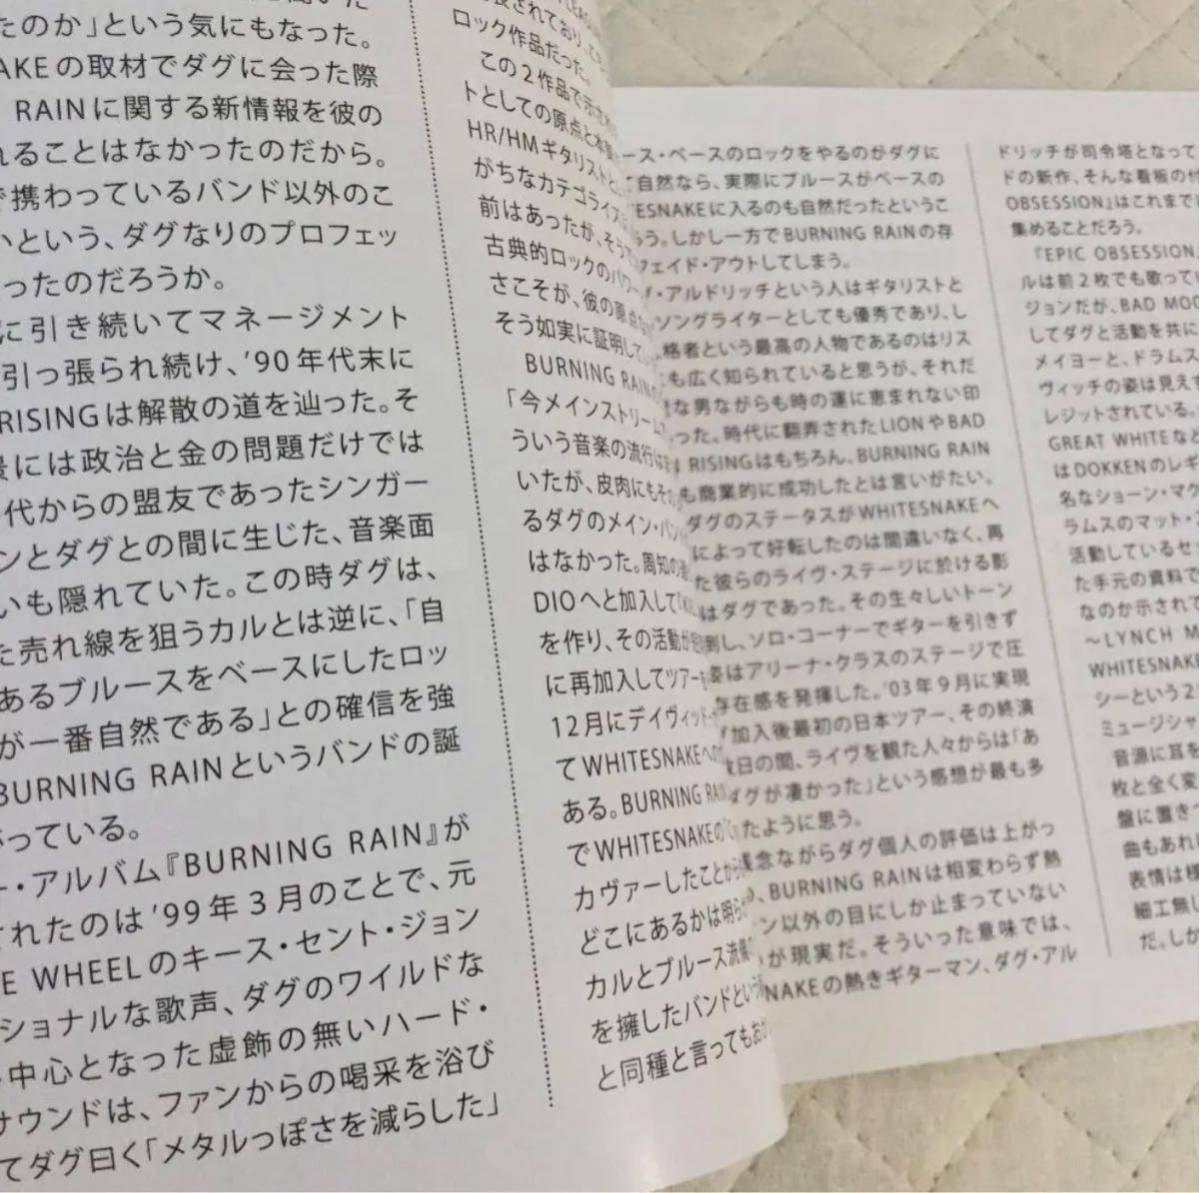 たのか」という気にもなった。
AKEの取材でダグに会った際
RAINに関する新情報を彼の
れることはなかったのだから。
で携わっているバンド以外のこ
いという、ダグなりのプロフェッ
ったのだろうか。
に引き続いてマネージメント
引っ張られ続け、'90年代末に
RISINGは解散の道を辿った。そ
景には政治と金の問題だけでは
代からの盟友であったシンガー
ンとダグとの間に生じた、音楽面
いも隠れていた。この時ダグは、
た売れ線を狙うカルとは逆に、「自
あるブルースをベースにしたロッ
が一番自然である」との確信を強
BURNING RAINというバンドの誕
がっている。
ー・アルバム『BURNING RAIN』が
されたのは'99年3月のことで、元
E WHEELのキース・セント・ジョン
ショナルな歌声、ダグのワイルドな
中心となった虚飾の無いハード・
サウンドは、ファンからの喝采を浴び
てダグ曰く「メタルっぽさを減らした」
ロック作品だった。
この2作品で示
トとしての原点と本
HR/HMギタリストと
がちなカテゴライズ
前はあったが、そう
古典的ロックのパワー
さこそが、彼の原点
そう如実に証明して
BURNING RAINの
「今メインストリーム
ういう音楽の流行は
いたが、皮肉にもその
るダグのメイン・バン
はなかった。周知の
DIOへと加入して
を作り、その活動が
に再加入してツアー
12月にデイヴィッド・
てWHITESNAKEへの
ある。BURNING RAIN
でWHITESNAKEの
カヴァーしたことから
どこにあるかは明ら
カルとブルース流儀
を擁したバンドという
と同種と言ってもお
ース・ベースのロックをやるのがダグに
て自然なら、実際にブルースがベースの
TESNAKEに入るのも自然だったというこ
ろう。しかし一方でBURNING RAINの存
フェイド・アウトしてしまう。
グ・アルドリッチという人はギタリストと
ソングライターとしても優秀であり、し
格者という最高の人物であるのはリス
にも広く知られていると思うが、それだ
な男ながらも時の運に恵まれない印
った。時代に翻弄されたLIONやBAD
RISINGはもちろん、BURNING RAIN
も商業的に成功したとは言いがたい。
ダグのステータスがWHITESNAKEへ
によって好転したのは間違いなく、再
た彼らのライヴ・ステージに於ける影
はダグであった。その生々しいトーン
刺し、ソロ・コーナーでギターを引きず
姿はアリーナ・クラスのステージで圧
存在感を発揮した。'03年9月に実現
加入後最初の日本ツアー、その終演
数日の間、ライヴを観た人々からは「あ
ダグが凄かった」という感想が最も多
たように思う。
残念ながらダグ個人の評価は上がっ
、BURNING RAINは相変わらず熱
ン以外の目にしか止まっていない
が現実だ。そういった意味では、
NAKEの熱きギターマン、ダグ・アル
ドリッチが司令塔となって
ドの新作、そんな看板の付
OBSESSION』はこれまで
集めることだろう。
『EPIC OBSESSION』
ルは前2枚でも歌って
ジョンだが、BAD MOO
してダグと活動を共に
メイヨーと、ドラムス
ヴィッチの姿は見えず
レジットされている。
GREAT WHITEなど
はDOKKENのレギ
名なショーン・マク
ラムスのマット・
活動しているセッ
た手元の資料で
なのか示されて
～LYNCH M
WHITESNAKE
シーという2
ミュージシャ
音源に耳を
枚と全く変
盤に置き
曲もあれ
表情は様
細工無し
だ。しか